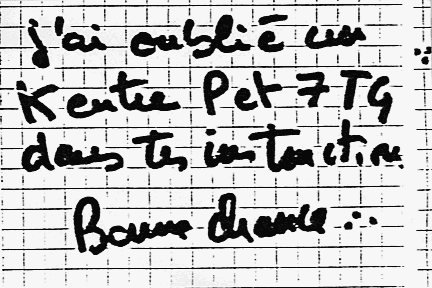 j'ai oublié un
K entre P et 7TG
dans tes instruction
Bonne chance ∴